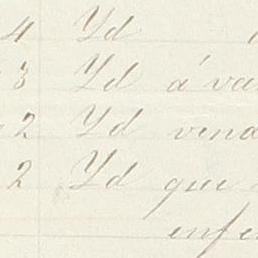 4 Yd
3 Yd á va
2 Yd vend
2 Yd que
enfe